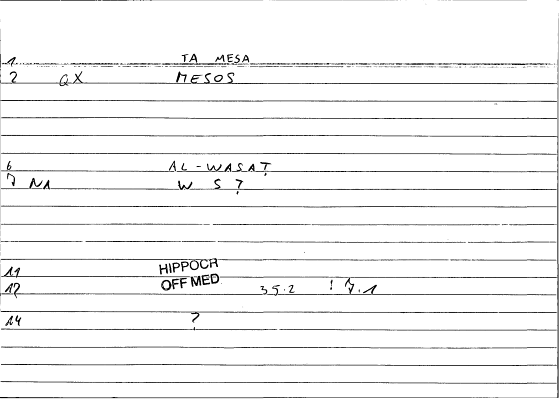 1 TA MESA
2 QX MESOS
6 AL-WASAṬ
7 NA W S Ṭ
11 HIPPOCR
12 OFF MED 35.2 ! 7.1
14 ?